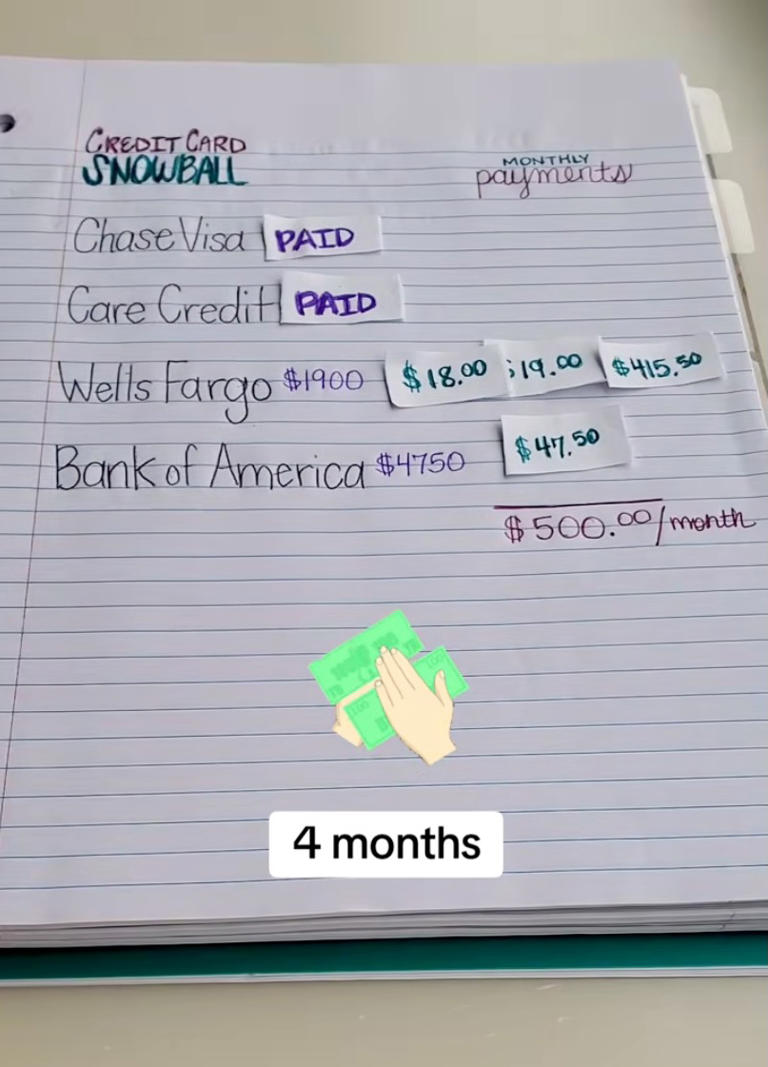 CREDIT CARD
SNOWBALL
MONTHLY
payments
Chase Visa PAID
Care Credit PAID
Wells Fargo $1900 $18.00 $19.00 $415.50
Bank of America $4750 $47.50
$500.00/month
4 months